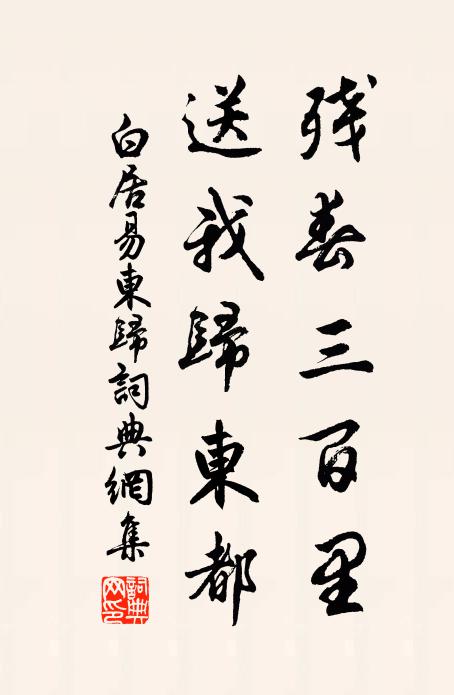 残春三百里
送我歸東都
白居易東歸詞典網集
詞典網印